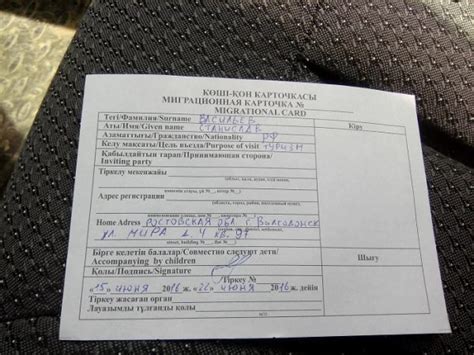 КӨШІ-ҚОН КАРТОЧКАСЫ
МИГРАЦИОННАЯ КАРТОЧКА №
MIGRATIONAL CARD
Тегі/Фамилия/Surname ВАСИЛЬЕВ
Аты/Имя/Given name СТАНИСЛАВ
Азаматтығы/Гражданство/Nationality РФ
Келу мақсаты/Цель въезда/Purpose of visit ТУРИЗМ
Қабылдайтын тарап/Принимающая сторона/
Inviting party
Тіркелу мекенжайы
Адрес регистрации
Home Adress РОСТОВСКАЯ ОБЛ. г Волгодонск
ул. МИРА д. 4 кв. 97
Бірге келетін балалар/Совместно следуют дети/
Accompanying by children
Қолы/Подпись/Signature
Тіркеу №
«15» июня 2016 ж. «22» июня 2016 ж. дейін
Тіркеу жасаған орган
Лауазымды тұлғаның қолы
Кіру
Шығу